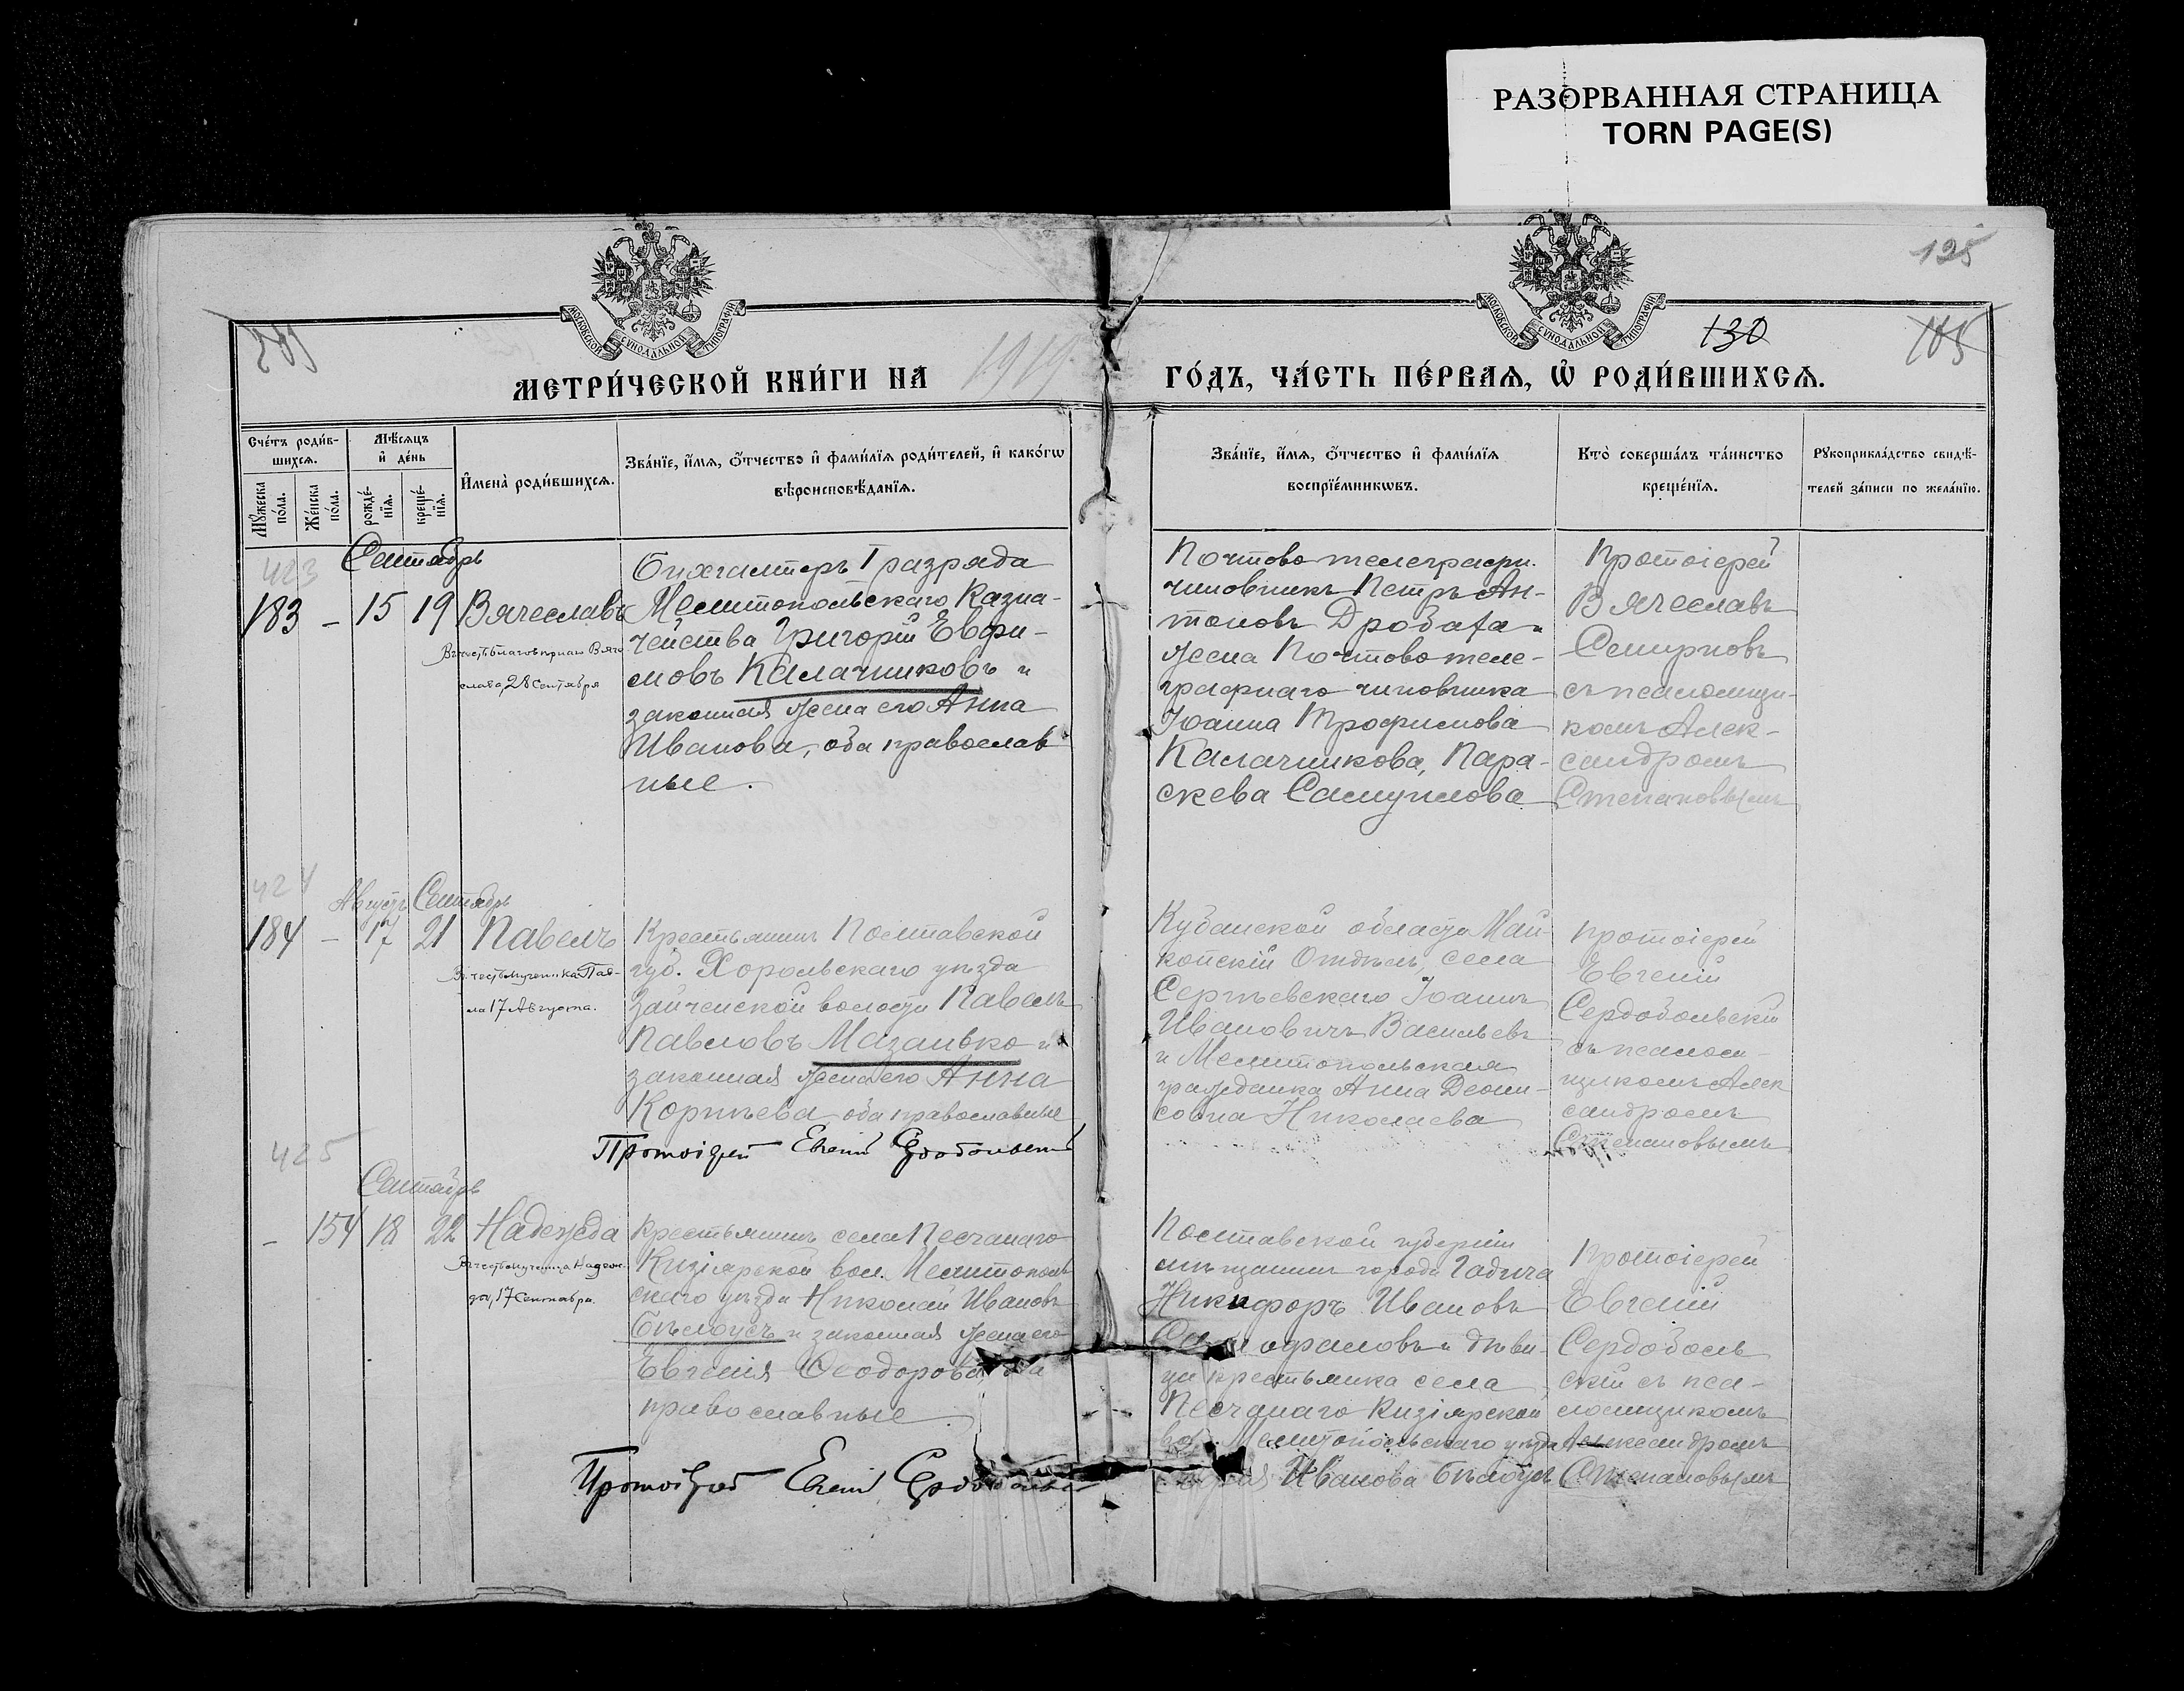 РАЗОРВАННАЯ СТРАНИЦА
TORN PAGE(S)
125
130
185
МОСКОВСКОЙ СѴНОДАЛЬНОЙ ТИПОГРАФІИ
МОСКОВСКОЙ СѴНОДАЛЬНОЙ ТИПОГРАФІИ
МЕТРИ́ЧЕСКОЙ КНИ́ГИ НА 1919 ГО́ДЪ, ЧА́СТЬ ПЕ́РВАѦ, Ѡ҆ РОДИ́ВШИХСѦ.
Сче́тъ роди́в-
шихсѧ.
Мꙋ́жеска по́ла.
Же́нска по́ла.
Мѣ́сѧцъ
и҆ де́нь
рожде́-
нїѧ.
креще́-
нїѧ.
И҆мена̀ роди́вшихсѧ.
Зва́нїе, и҆́мѧ, ѻ҆́тчество и҆ фами́лїѧ роди́телей, и҆ како́гѡ
вѣроисповѣ́данїѧ.
Зва́нїе, и҆́мѧ, ѻ҆́тчество и҆ фами́лїѧ
воспрїе́мникѡвъ.
Кто̀ соверша́лъ та́инство
креще́нїѧ.
Рꙋкоприкла́дство свидѣ́-
телей за́писи по жела́нїю.
423
Сентябрь
183 – 15 19 Вячеславъ
слава, 28 Сентября
Бухгалтеръ I разряда
Мелитопольскаго Казна-
чейства Григорій Евфи-
мовъ Калачниковъ и
законная жена его Анна
Иванова, оба православ
ные.
Почтово телеграфн.
чиновникъ Петръ Ан-
тоновъ Дробаха и
жена Почтово теле-
графнаго чиновника
Іоанна Трофимова
Калачникова, Пара-
скева Самуилова
Протоіерей
Вячеславъ
Смирновъ
съ псаломщи-
комъ Алек-
сандромъ
Степановымъ
424
Августъ Сентябрь
184 – 17 21 Павелъ
Въ честь мученика Пав-
ла 17 Августа.
Крестьянинъ Полтавской
губ. Хорольскаго уѣзда
Зайченской волости Павелъ
Павловъ Мазанько и
законная жена его Анна
Корнѣева, оба православные
Протоіерей Евгеній Сердобольскій
Кубанской области Май-
копскій Отдѣлъ, села
Сергѣевскаго Іоаннъ
Ивановичъ Васильевъ
и Мелитопольская
гражданка Анна Деони-
совна Николаева
Протоіерей
Евгеній
Сердобольскій
съ псалом-
щикомъ Алек
сандромъ
Степановымъ
425
Сентябрь
– 154 18 22 Надежда
Въ честь мученицы Надеж-
ды, 17 Сентября.
Крестьянинъ села Песчанаго
Кизіярской вол. Мелитополь
скаго уѣзда Николай Ивановъ
Бѣлоусъ и законная жена его
Евгенія Ѳеодорова, оба
православные.
Протоіерей Евгеній Сердобольскій
Полтавской губерніи
мѣщанинъ города Гадяча
Никифоръ Ивановъ
и дѣви-
ца крестьянка села
Песчанаго Кизіярской
вол. Мелитопольскаго уѣзда
Иванова Бѣлоусъ
Протоіерей
Евгеній
Сердоболь
скій съ пса-
ломщикомъ
Александромъ
Степановымъ